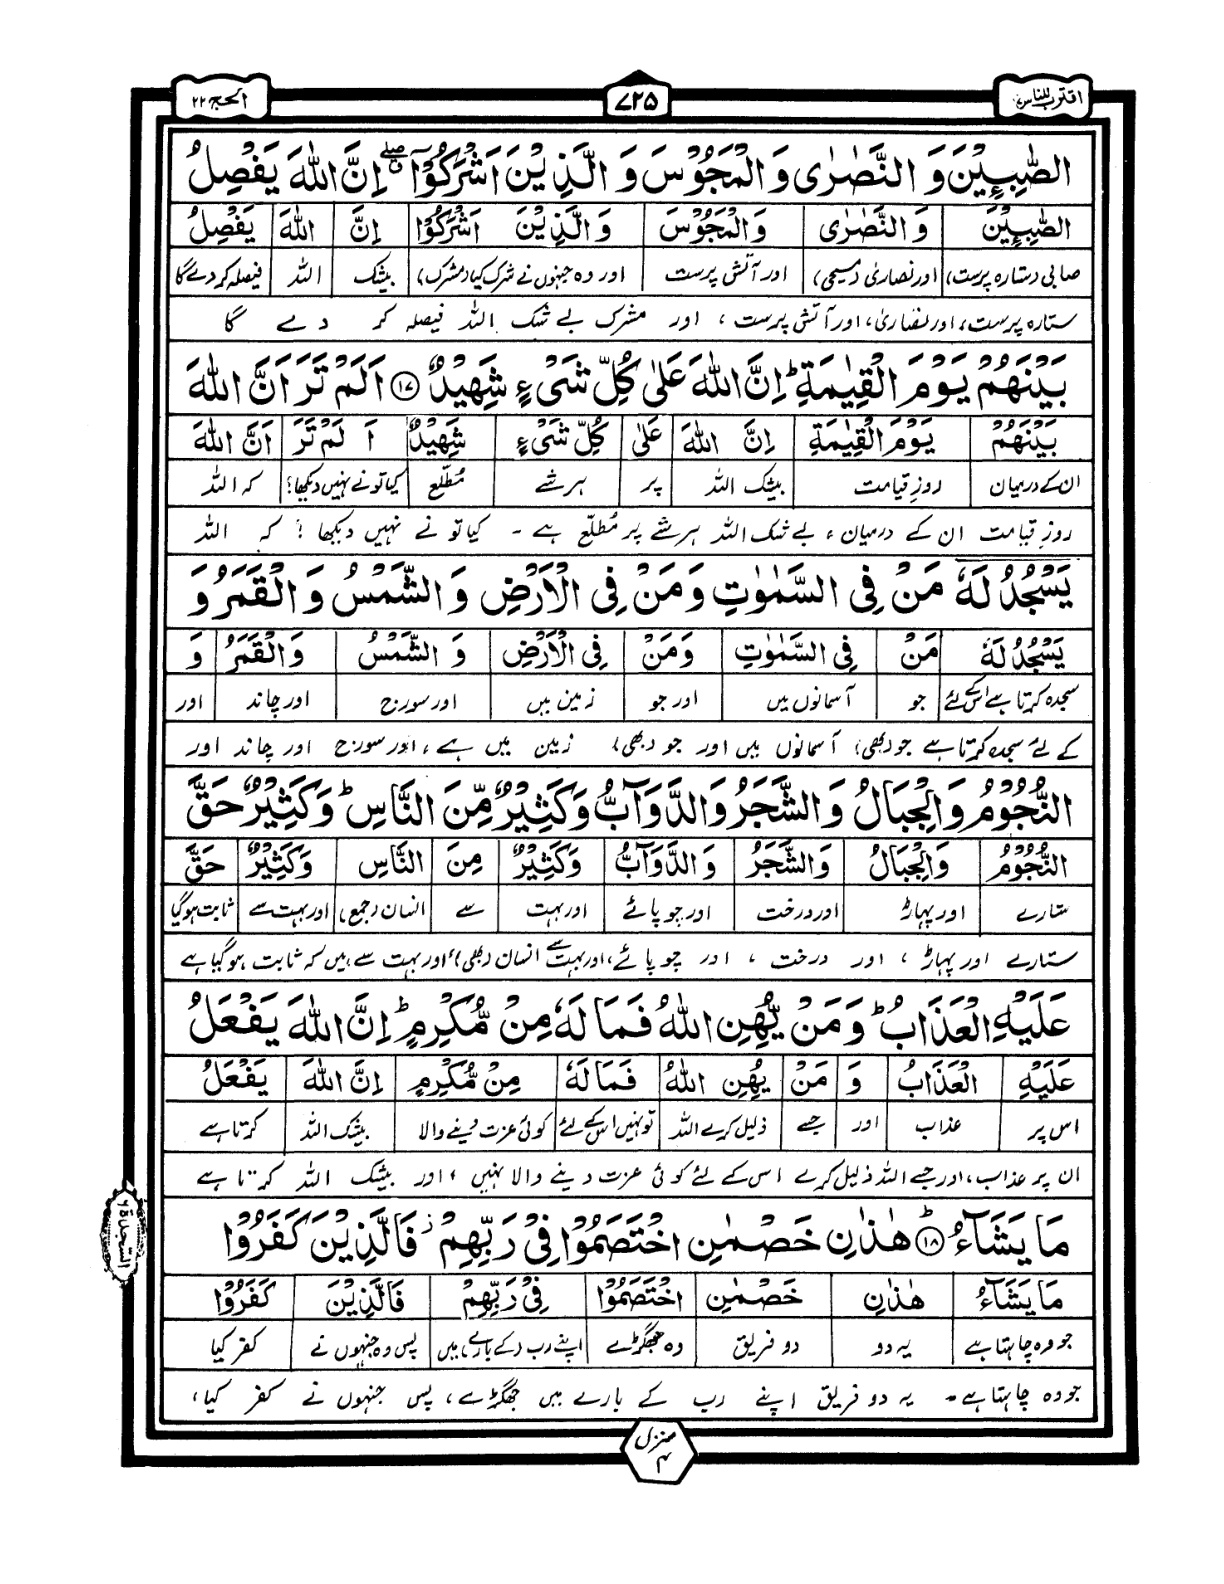 اقترب للناس ۱۷
۷۲۵
الحج ۲۲
الصّٰبِـِٕيْنَ وَ النَّصٰرٰى وَ الْمَجُوْسَ وَ الَّذِيْنَ اَشْرَكُوْۤا ۖۗ اِنَّ اللّٰهَ يَفْصِلُ
الصّٰبِـِٕيْنَ وَ النَّصٰرٰى وَالْمَجُوْسَ وَ الَّذِيْنَ اَشْرَكُوْۤا اِنَّ اللّٰهَ يَفْصِلُ
صابی (ستارہ پرست) اور نصاریٰ (مسیحی) اور آتش پرست اور وہ جنہوں نے شرک کیا (مشرک) بیشک اللہ فیصلہ کر دے گا
ستارہ پرست، اور نصاریٰ، اور آتش پرست، اور مشرک بے شک اللہ فیصلہ کر دے گا
بَيْنَهُمْ يَوْمَ الْقِيٰمَةِ ؕ اِنَّ اللّٰهَ عَلٰى كُلِّ شَیْءٍ شَهِيْدٌ ۝۱۷ اَلَمْ تَرَ اَنَّ اللّٰهَ
بَيْنَهُمْ يَوْمَ الْقِيٰمَةِ اِنَّ اللّٰهَ عَلٰى كُلِّ شَیْءٍ شَهِيْدٌ اَ لَمْ تَرَ اَنَّ اللّٰهَ
ان کے درمیان روزِ قیامت بیشک اللہ پر ہر شے مُطّلع کیا تو نے نہیں دیکھا؟ کہ اللہ
روزِ قیامت ان کے درمیان، بے شک اللہ ہر شے پر مُطّلع ہے ۔ کیا تو نے نہیں دیکھا؟ کہ اللہ
يَسْجُدُ لَهٗ مَنْ فِی السَّمٰوٰتِ وَ مَنْ فِی الْاَرْضِ وَ الشَّمْسُ وَ الْقَمَرُ وَ
يَسْجُدُ لَهٗ مَنْ فِی السَّمٰوٰتِ وَ مَنْ فِی الْاَرْضِ وَ الشَّمْسُ وَ الْقَمَرُ وَ
سجدہ کرتا ہے اس کے لئے جو آسمانوں میں اور جو زمین میں اور سورج اور چاند اور
کے لئے سجدہ کرتا ہے جو (بھی) آسمانوں میں اور جو (بھی) زمین میں ہے، اور سورج اور چاند اور
النُّجُوْمُ وَ الْجِبَالُ وَ الشَّجَرُ وَ الدَّوَآبُّ وَ كَثِيْرٌ مِّنَ النَّاسِ ؕ وَ كَثِيْرٌ حَقَّ
النُّجُوْمُ وَ الْجِبَالُ وَ الشَّجَرُ وَ الدَّوَآبُّ وَ كَثِيْرٌ مِنَ النَّاسِ وَ كَثِيْرٌ حَقَّ
ستارے اور پہاڑ اور درخت اور چوپائے اور بہت سے انسان (جمع) اور بہت سے ثابت ہو گیا
ستارے اور پہاڑ، اور درخت، اور چوپائے، اور بہت سے انسان (بھی) اور بہت سے ہیں کہ ثابت ہو گیا ہے
عَلَيْهِ الْعَذَابُ ؕ وَ مَنْ يُّهِنِ اللّٰهُ فَمَا لَهٗ مِنْ مُّكْرِمٍ ؕ اِنَّ اللّٰهَ يَفْعَلُ
عَلَيْهِ الْعَذَابُ وَ مَنْ يُهِنِ اللّٰهُ فَمَا لَهٗ مِنْ مُّكْرِمٍ اِنَّ اللّٰهَ يَفْعَلُ
اس پر عذاب اور جسے ذلیل کرے اللہ تو نہیں اس کے لئے کوئی عزت دینے والا بیشک اللہ کرتا ہے
ان پر عذاب، اور جسے اللہ ذلیل کرے اس کے لئے کوئی عزت دینے والا نہیں، اور بیشک اللہ کرتا ہے
مَا يَشَآءُ ؕ۝۱۸ هٰذٰنِ خَصْمٰنِ اخْتَصَمُوْا فِیْ رَبِّهِمْ ؗ فَالَّذِيْنَ كَفَرُوْا
السجدة ۶
مَا يَشَآءُ هٰذٰنِ خَصْمٰنِ اخْتَصَمُوْا فِیْ رَبِّهِمْ فَالَّذِيْنَ كَفَرُوْا
جو وہ چاہتا ہے یہ دو دو فریق وہ جھگڑے اپنے رب (کے بارے) میں پس وہ جنہوں نے کفر کیا
جو وہ چاہتا ہے۔ یہ دو فریق اپنے رب کے بارے میں جھگڑے، پس جنہوں نے کفر کیا،
منزل ۴